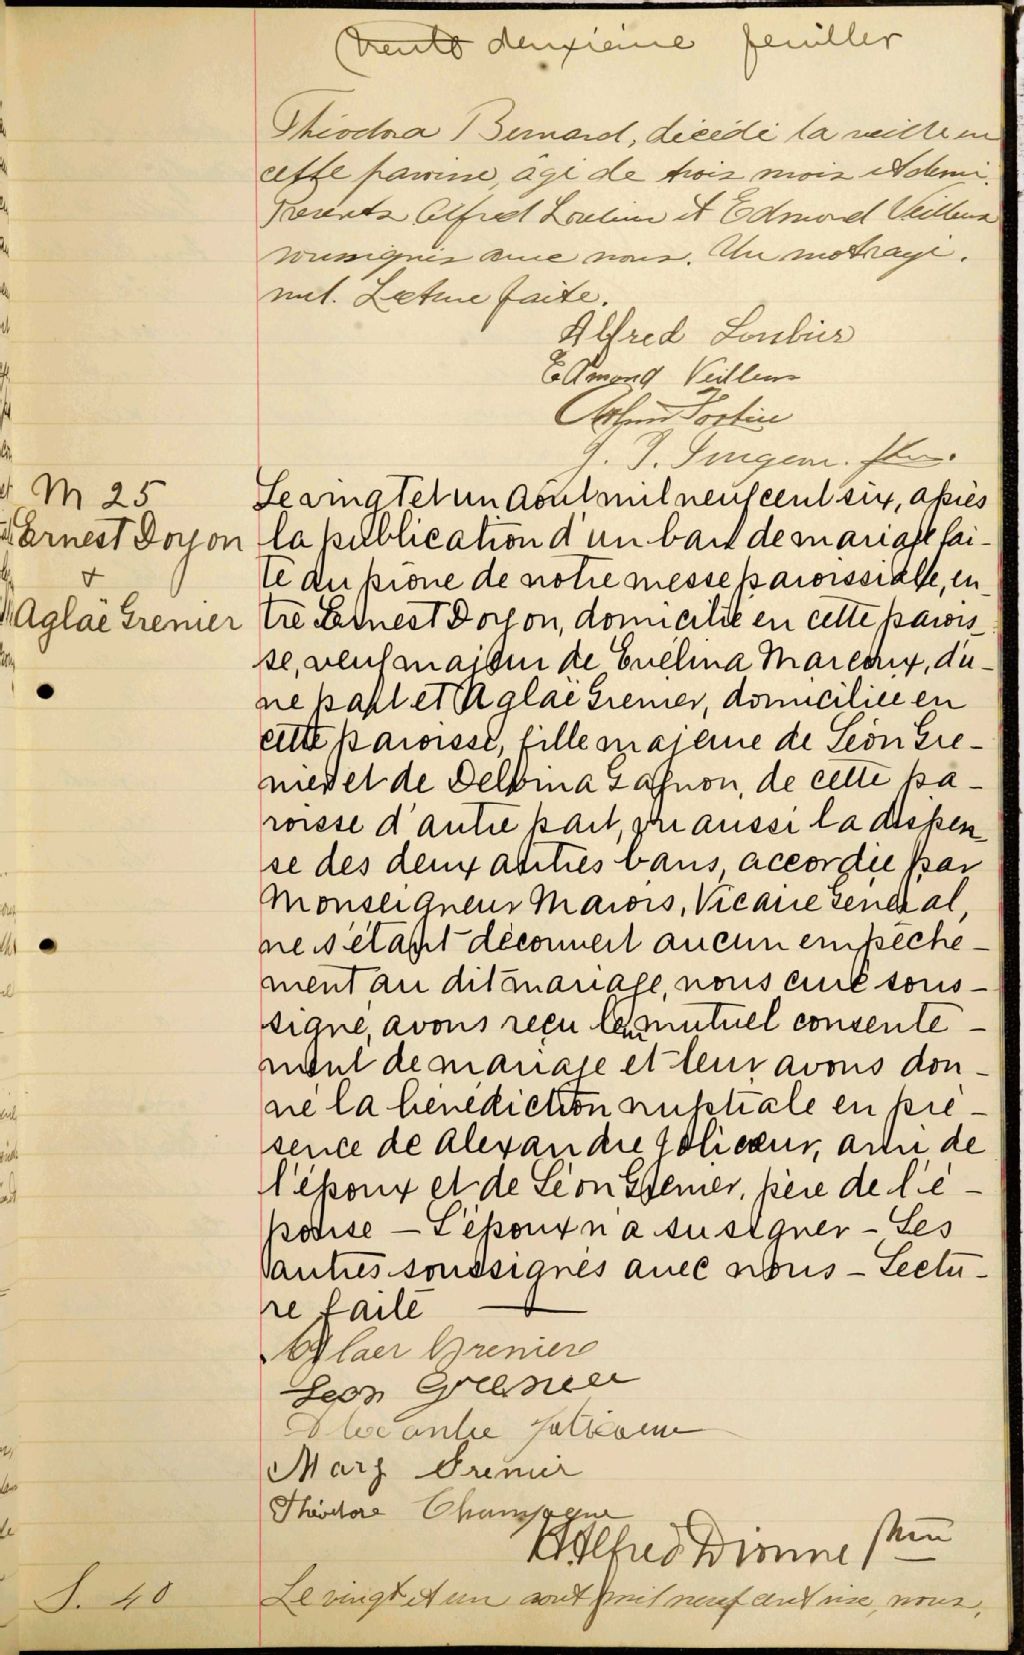 trente deuxième feuillet
Théodora Bernard, décédé la veille en
cette paroisse, âgé de trois mois et demi.
Présents Alfred Loubier et Edmond Veilleux
soussignés avec nous. Un mot rayé.
nul. Lecture faite.
Alfred Loubier
Edmond Veilleux
Fortin
J.
M 25
Ernest Doyon
&
Aglaë Grenier
Le vingt et un Août mil neuf cent six, après
la publication d'un ban de mariage fai-
te au prône de notre messe paroissiale, en-
tre Ernest Doyon, domicilié en cette parois-
se, veuf majeur de Evélina Marcoux, d'u-
ne part et Aglaë Grenier, domiciliée en
cette paroisse, fille majeure de Léon Gre-
nier et de Delvina Gagnon, de cette pa-
roisse d'autre part, vu aussi la dispen-
se des deux autres bans, accordée par
Monseigneur Marois, Vicaire Général,
ne s'étant découvert aucun empêche-
ment au dit mariage, nous curé sous-
signé, avons reçu leur mutuel consente-
ment de mariage et leur avons don-
né la bénédiction nuptiale en pré-
sence de Alexandre Jolicoeur, ami de
l'époux et de Léon Grenier, père de l'é-
pouse — L'époux n'a su signer — Les
autres soussignés avec nous — Lectu-
re faite
Aglaer Grenier
Leon Grenier
Alexandre Jolicoeur
Mary Grenier
Théodore Champagne
Alfred Dionne Ptre
S. 40
Le vingt et un aout mil neuf cent six, nous,